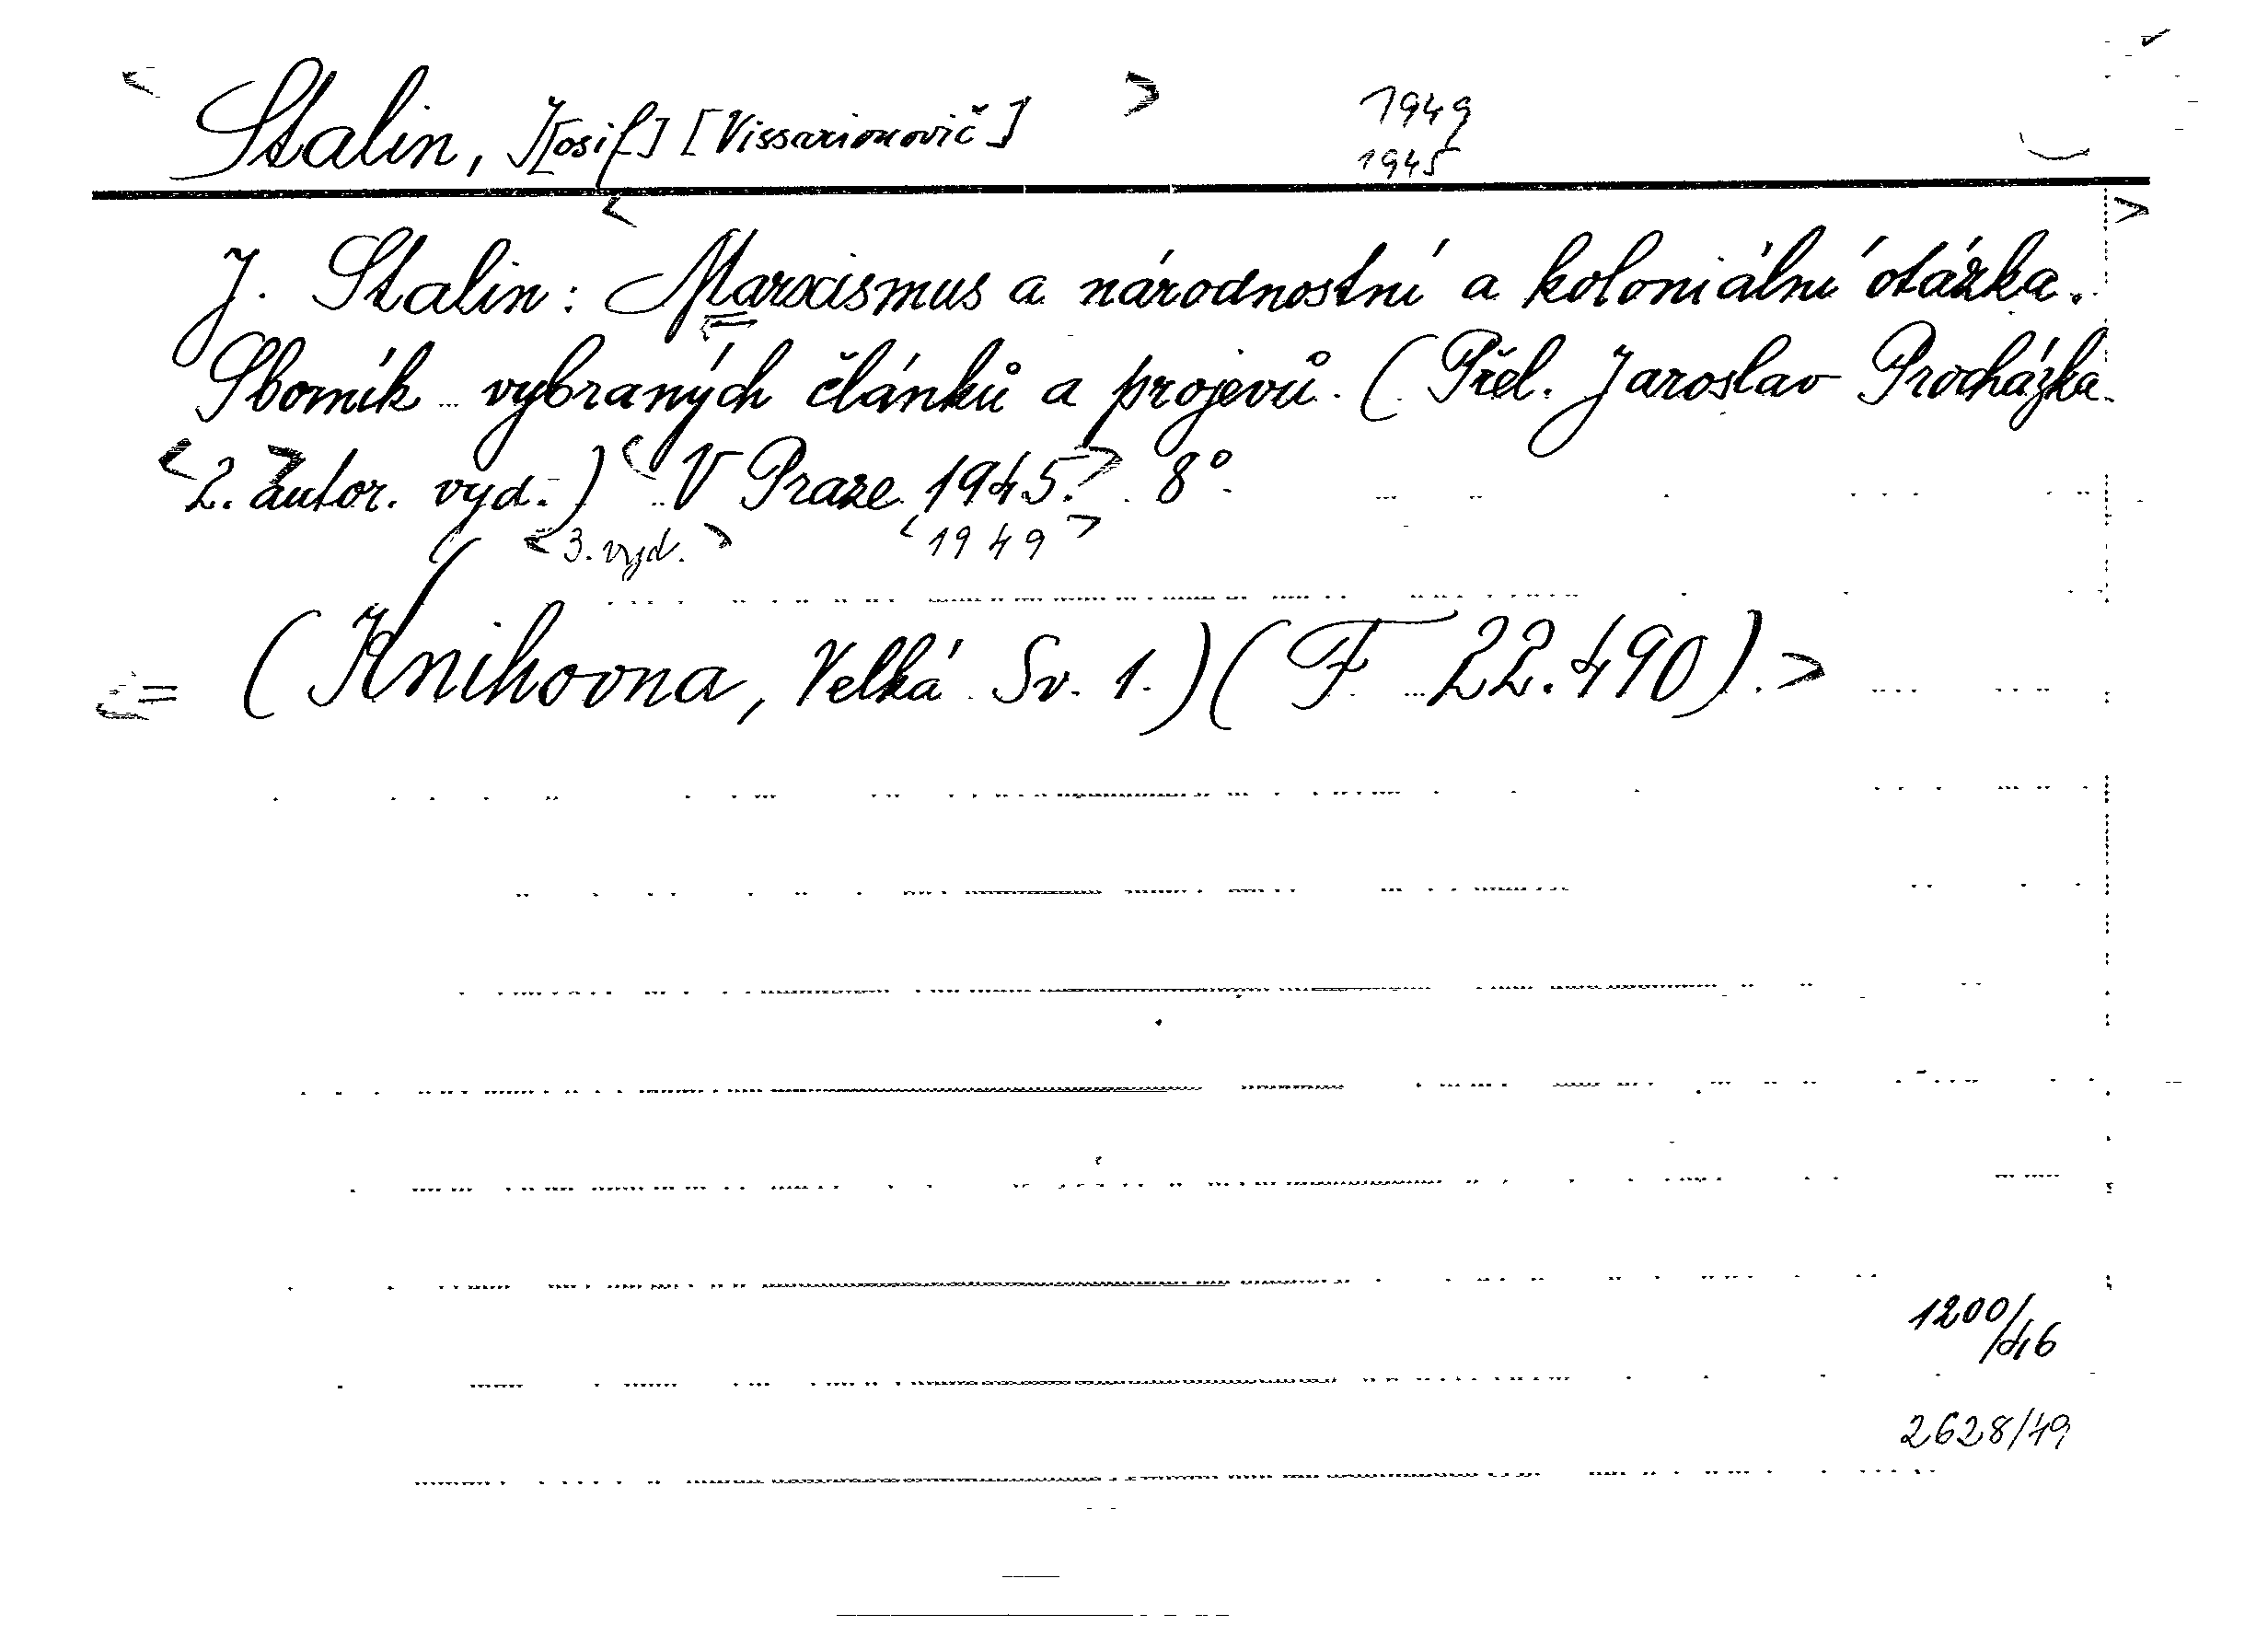 < Stalin, J[osif] [Vissarionovič] > 1949
1945
J. Stalin: < Marxismus a národnostní a koloniální otázka. >
Sborník vybraných článků a projevů. (Přel. Jaroslav Procházka.
< 2. > autor. vyd.) < V Praze 1945. > 8°.
< 3. vyd. > < 1949 >
<= (Knihovna, Velká Sv. 1.) (F 22.490). >
1200/46
2628/49